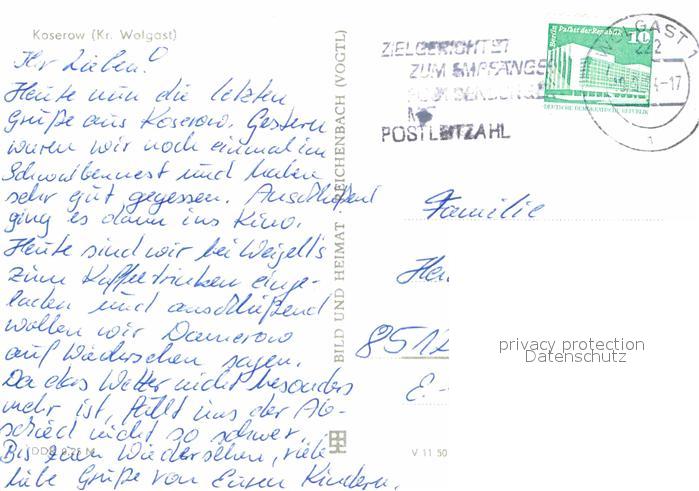 Koserow (Kr. Wolgast)
Ihr Lieben!
Heute nun die letzten
Grüße aus Koserow. Gestern
waren wir noch einmal im
Schwalbennest und haben
sehr gut gegessen. Anschließend
ging es dann ins Kino.
Heute sind wir bei Weigelts
zum Kaffeetrinken einge-
laden und anschließend
wollen wir Damerow
auf Wiedersehen sagen.
Da das Wetter nicht besonders
mehr ist, fällt uns der Ab-
schied nicht so schwer.
Bis zum Wiedersehen, viele
liebe Grüße von Euren Kindern.
BILD UND HEIMAT · REICHENBACH (VOGTL)
V 11 50
ZIELGERICHTET
ZUM EMPFÄNGER
POSTLEITZAHL
Berlin Palast der Republik
10
DEUTSCHE DEMOKRATISCHE REPUBLIK
WOLGAST 1
222
-17
1
Familie
8512
privacy protection
Datenschutz